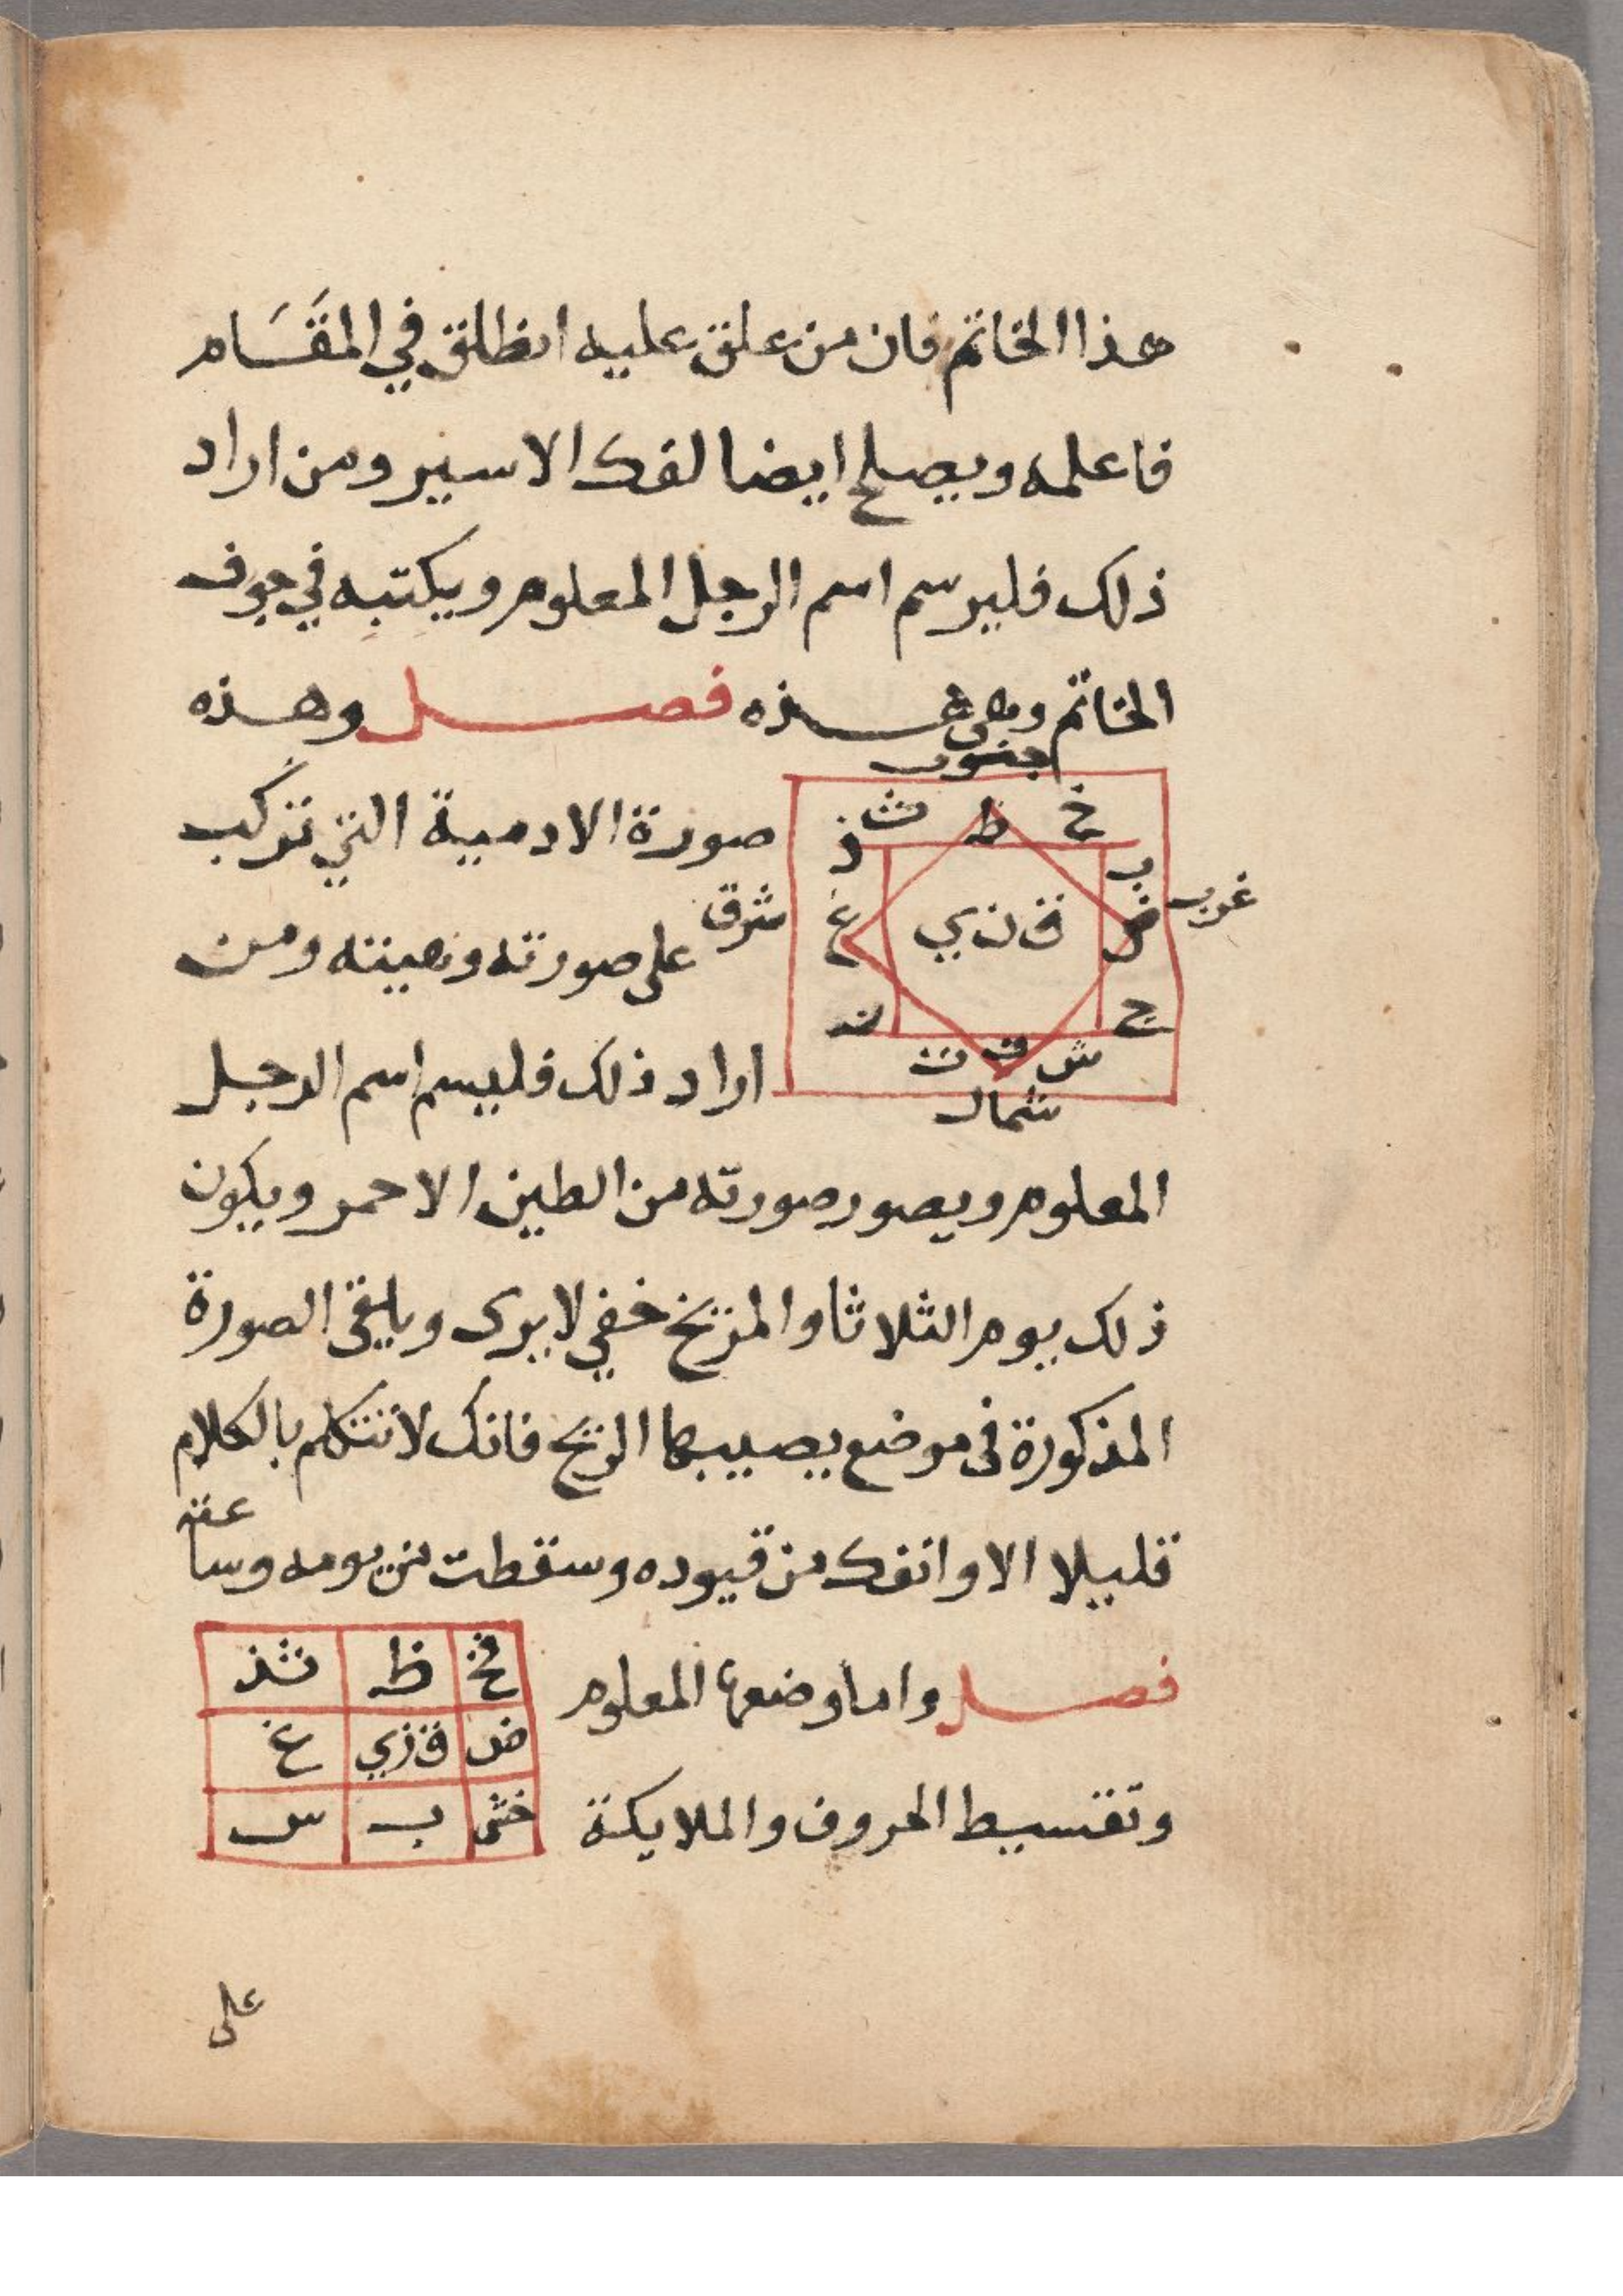 هذا الخاتم فان من علق عليه انطلق في المقَسَام
فاعلمه ويصلح ايضا لفك الاسير ومن اراد
ذلك فليرسم اسم الرجل المعلوم ويكتبه في جوف
الخاتم وهي هذه فصل وهذه
جنوب
خ ظ ث ذ
صورة الادمية التي تركب
ب
غرب
ض ق ن ي غ
شرق
على صورته وهيئته ومن
ج
ش ت ث
شمال
اراد ذلك فليسم اسم الرجل
المعلوم ويصور صورته من الطين الاحمر ويكون
ذلك يوم الثلاثا والمريخ خفي لا يرى ويلقى الصورة
المذكورة في موضع يصيبها الريح فانك لا تتكلم بالكلام
قليلا الا وانفك من قيوده وسقطت من يومه وساعته
فصل واما وضعها المعلوم
ظ ثذ
ض ق زي غ
وتقسيط الحروف والملايكة
ب س
على